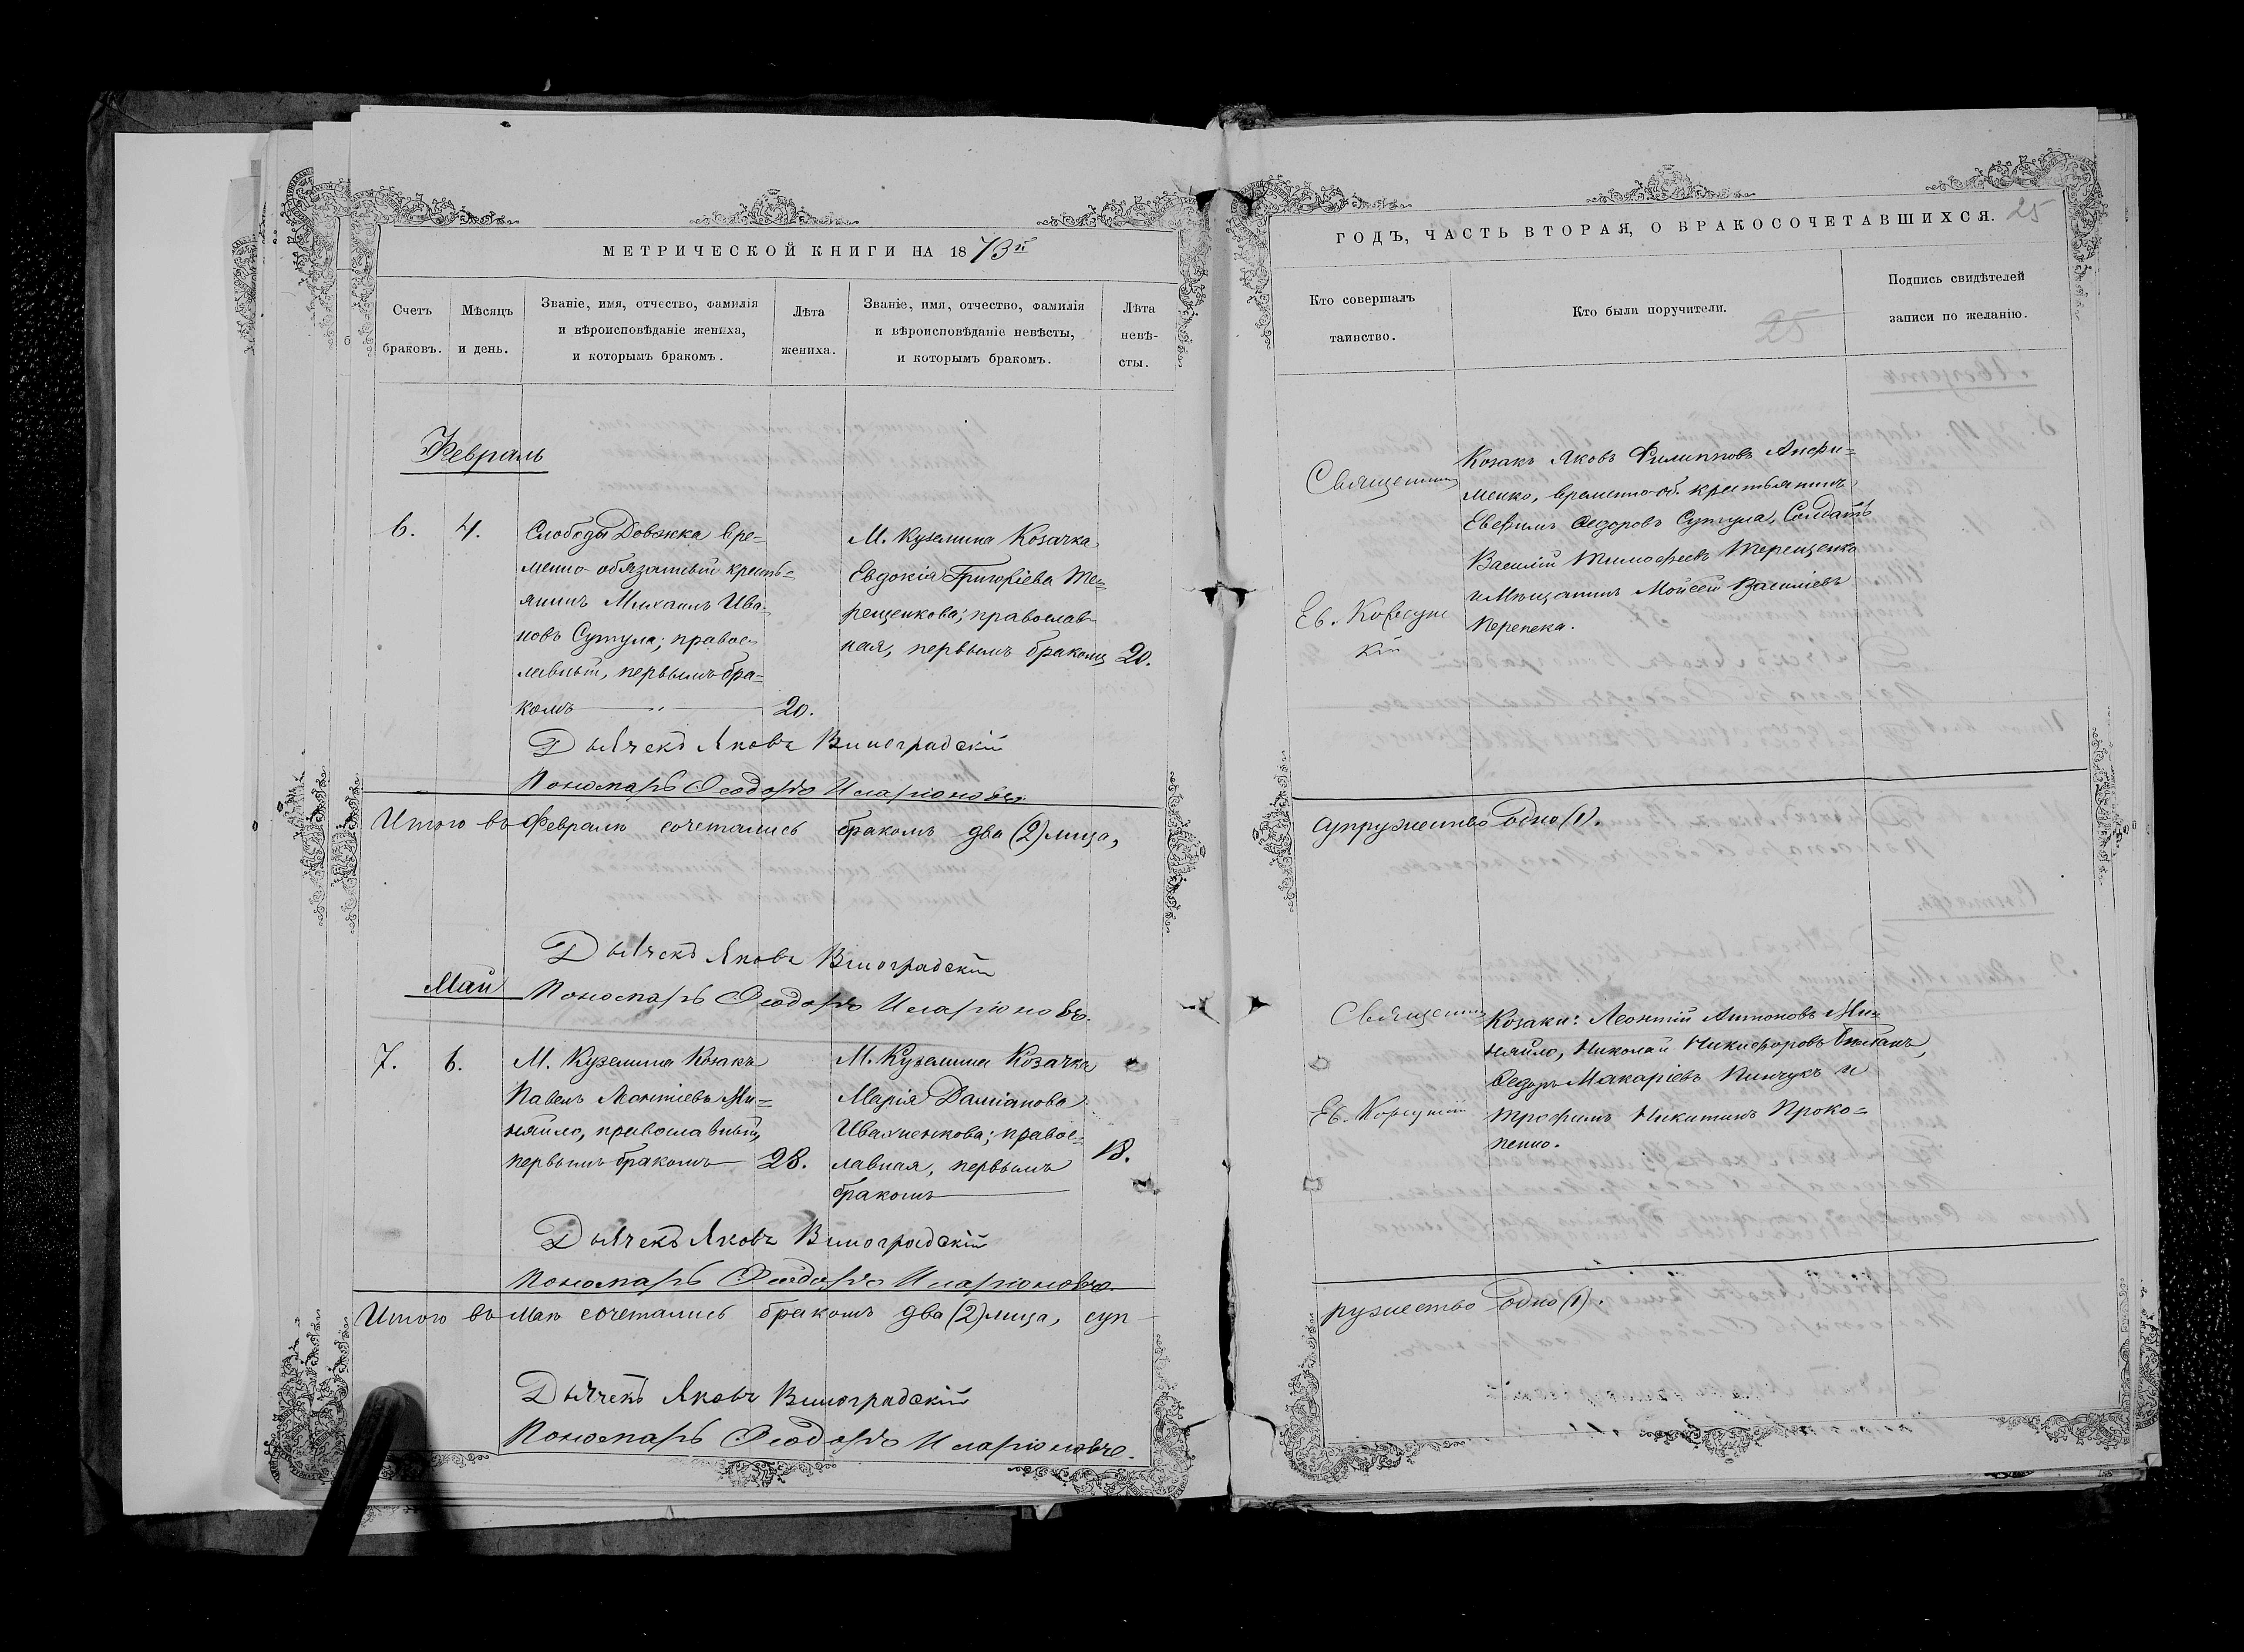 МЕТРИЧЕСКОЙ КНИГИ НА 1873й
Счетъ
браковъ.
Мѣсяцъ
и день.
Званіе, имя, отчество, фамилія
и вѣроисповѣданіе жениха,
и которымъ бракомъ.
Лѣта
жениха.
Званіе, имя, отчество, фамилія
и вѣроисповѣданіе невѣсты,
и которымъ бракомъ.
Лѣта
невѣ-
сты.
Февраль
6.
4.
Слободы Довжка вре=
менно-обязатный кресть=
янинъ Михаилъ Ива-
новъ Сутула; правос-
лавный, первымъ бра=
комъ
20.
М. Куземина Козачка
Евдокія Григоріева Те-
рещенкова; православ-
ная, первымъ бракомъ
20.
Дьячекъ Яковъ Виноградскій
Пономарь Ѳеодоръ Иларіоновъ.
Итого въ Февралѣ сочетались бракомъ два (2) лица,
Дьячекъ Яковъ Виноградскій
Май
Пономарь Ѳеодоръ Иларіоновъ.
7.
6.
М. Куземина Козакъ
Павелъ Леонтіевъ Ми=
няйло, православный,
первымъ бракомъ
28.
М. Куземина Козачка
Марія Даміанова
Ивахненкова; правос=
лавная, первымъ
бракомъ
18.
Дьячекъ Яковъ Виноградскій
Пономарь Ѳеодоръ Иларіоновъ.
Итого въ Маѣ сочетались бракомъ два (2) лица, суп-
Дьячекъ Яковъ Виноградскій
Пономарь Ѳеодоръ Иларіоновъ.
ГОДЪ, ЧАСТЬ ВТОРАЯ, О БРАКОСОЧЕТАВШИХСЯ. 25
Кто совершалъ
таинство.
Кто были поручители.
25
Подпись свидѣтелей
записи по желанію.
Священникъ
Ев. Корсунс
кій
Козакъ Яковъ Филипповъ Анфи=
менко, временно-об. крестьянинъ
Евфимъ Ѳедоровъ Сутула, Солдатъ
Василій Тимофеевъ Терещенко
и Мѣщанинъ Мойсей Василіевъ
Перепека.
супружество одно (1).
Священникъ
Козаки: Леонтій Антоновъ Ми=
няйло, Николай Никифоровъ
Ѳедоръ Макаріевъ Пинчукъ и
Трофимъ Никитинъ Проко=
пенко.
ружество одно (1).